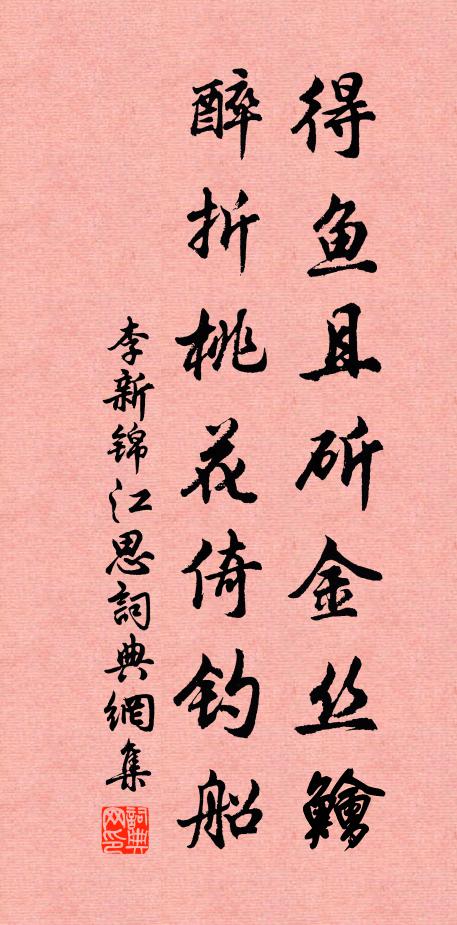 得鱼且斫金丝鱠
醉折桃花倚钓船
李新锦江思詞典網集
詞典网印